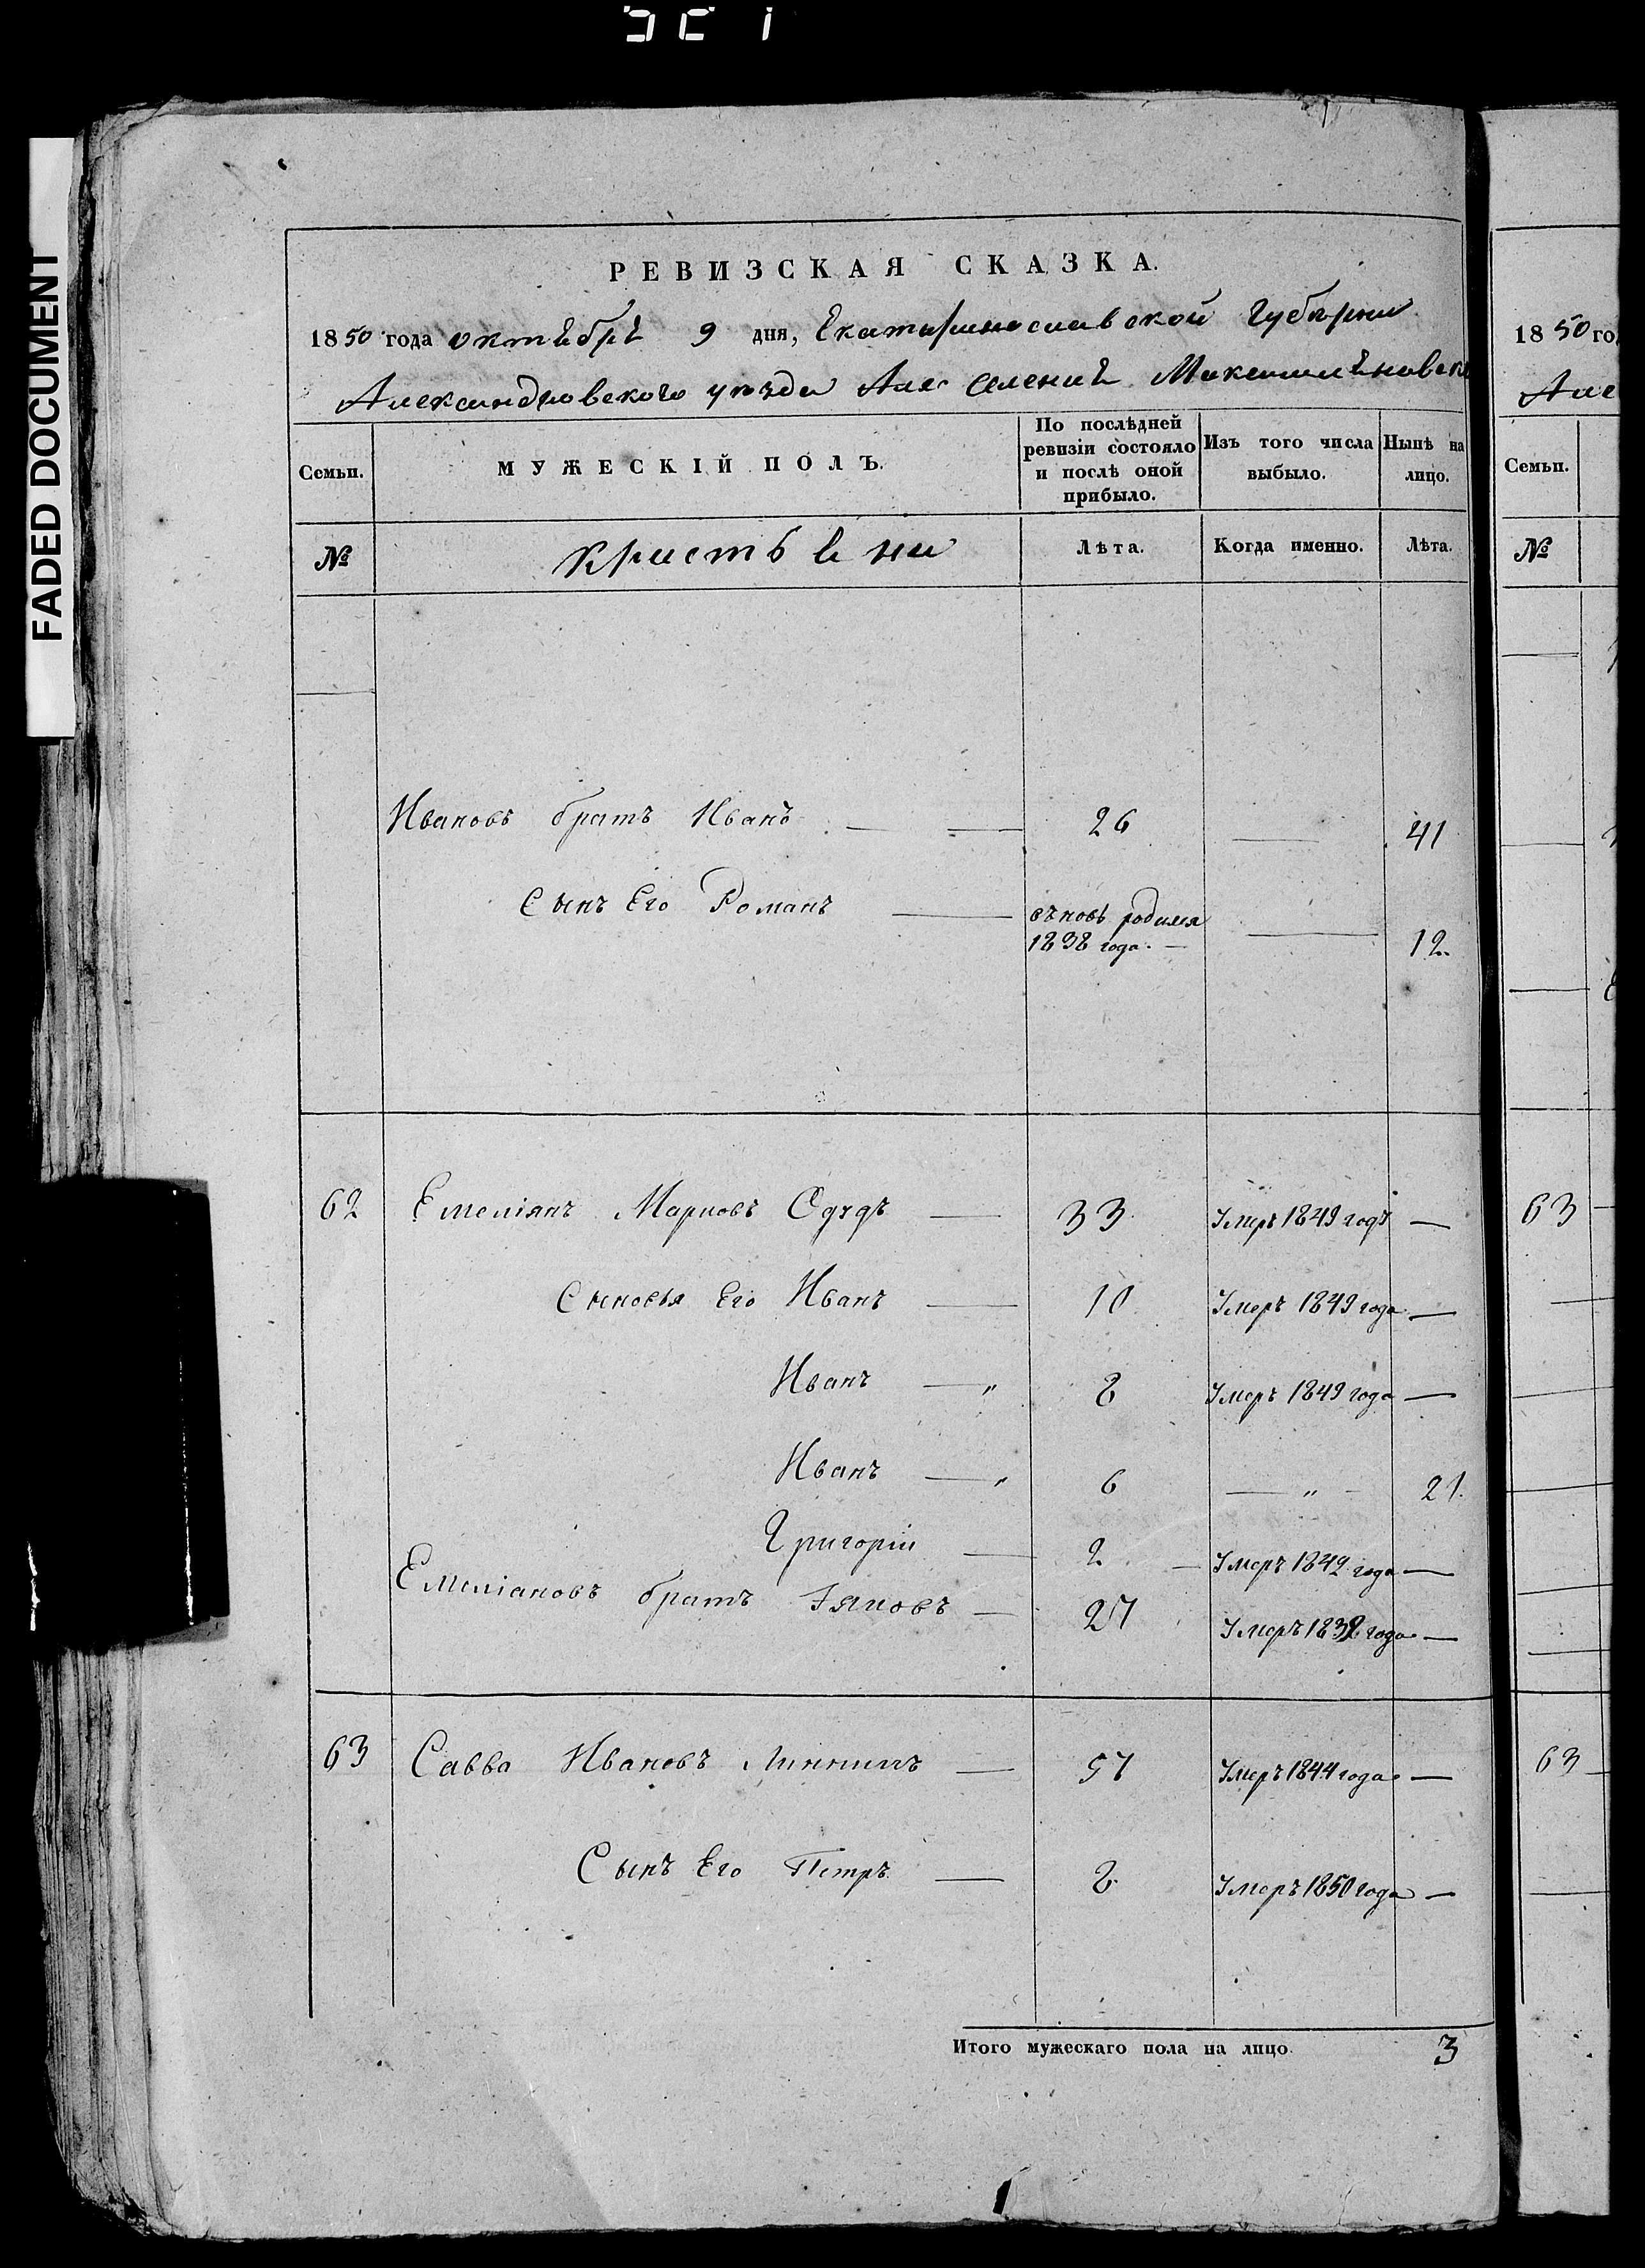 FADED DOCUMENT
РЕВИЗСКАЯ СКАЗКА.
1850 года октебре 9 дня, Екатеринославской Губернии
Александровского уезда
Семьи.
МУЖЕСКІЙ ПОЛЪ.
По послѣдней ревизіи состояло и послѣ оной прибыло.
Изъ того числа выбыло.
Нынѣ на лицо.
№
Лѣта.
Когда именно.
Лѣта.
Ивановъ братъ Иванъ 26 41
Сынъ Его Романъ вновь родился 1838 года. 12.
62 Емеліянъ Марковъ 33 Умеръ 1849 года
Сыновья Его Иванъ 10 Умеръ 1849 года
Иванъ 8 Умеръ 1849 года
Иванъ 6 21.
Григорій 2 Умеръ 1849 года
Емеліановъ братъ Яковъ 27 Умеръ 1838 года
63 Савва Ивановъ 57 Умеръ 1844 года
Сынъ Его Петръ 8 Умеръ 1850 года
Итого мужескаго пола на лицо 3
1850 го
Але
Семьи.
№
63
63